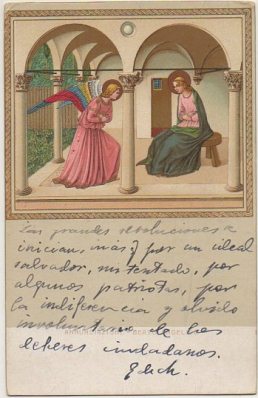 Las grandes revoluciones se
inician, más q por un ideal
salvador, sustentado, por
algunos patriotas, por
la indiferencia y olvido
involuntario de los
deberes ciudadanos.